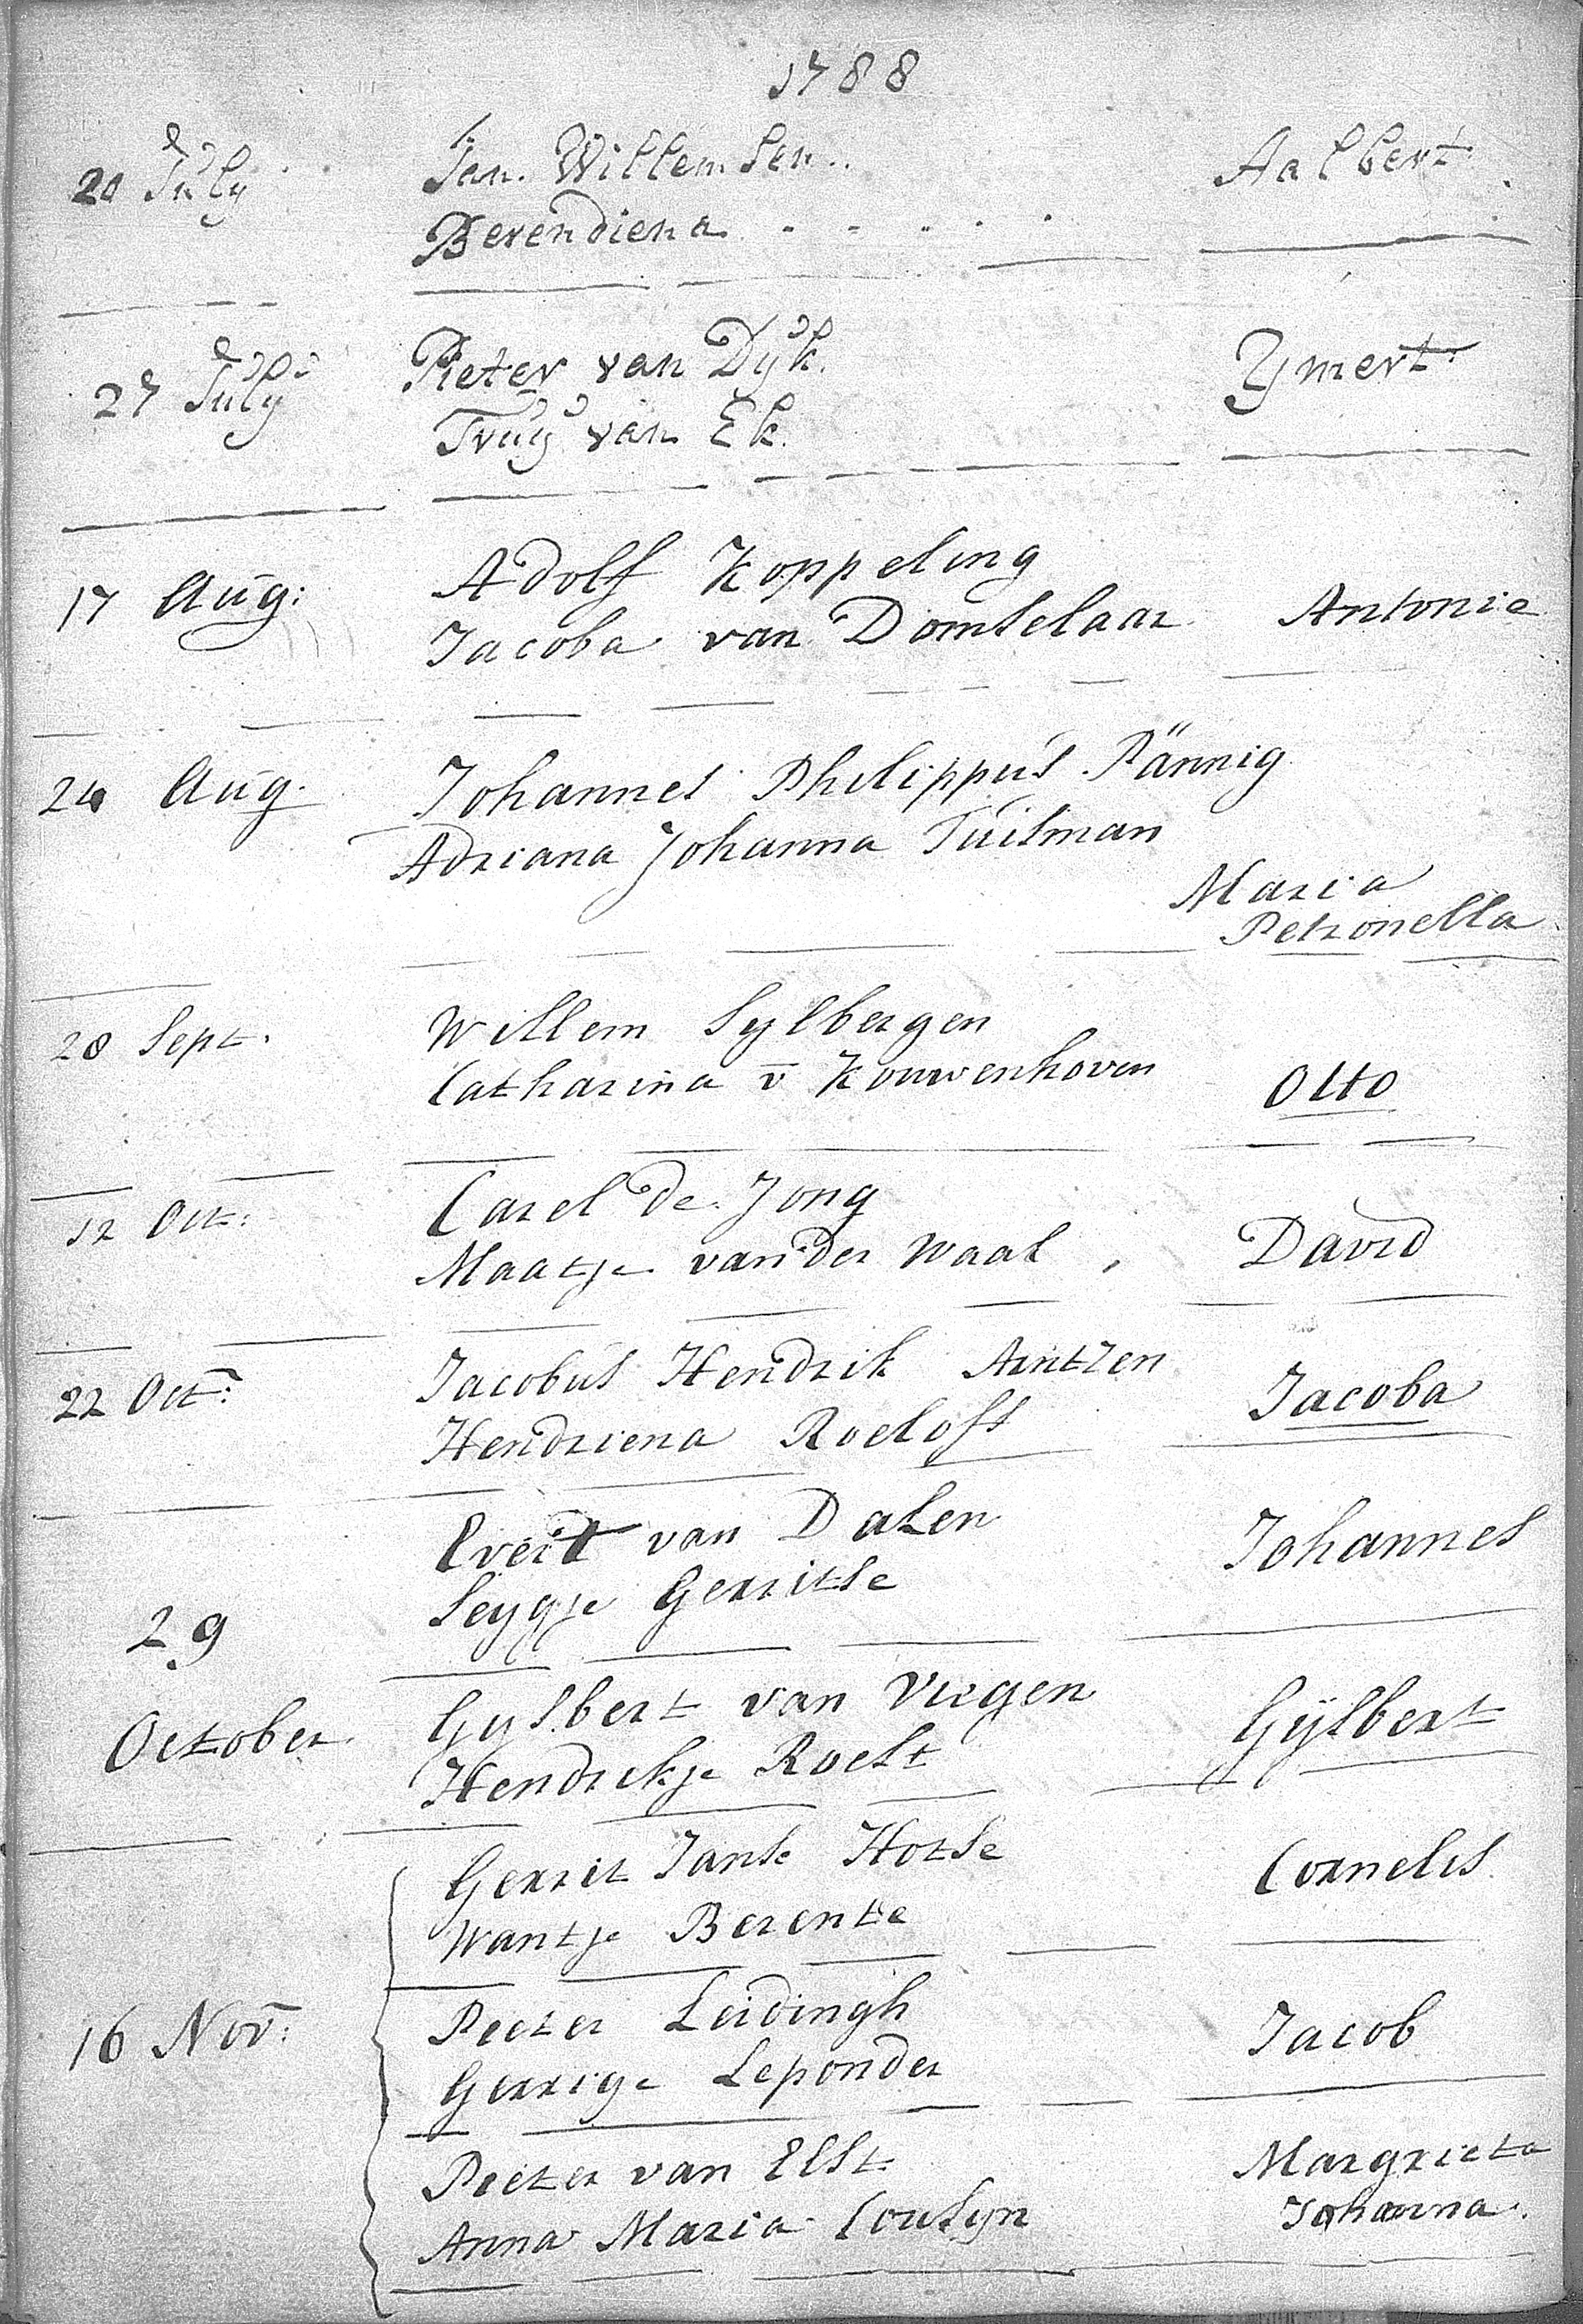 1788
20 July Jan Willemsen.. Aalbert
Berendiena
27 July Pieter van Dyk. Ymert
Truy van Ek.
17 Aug: Adolf Koppeling
Jacoba van Domselaar Antonie
24 Aug. Johannes Philippus Pännig
Adriana Johanna Tuisman
Maria
Petronella
28 Sept. Willem Sylbergen
Catharina v Kouwenhoven Otto
12 Oct: Carel de Jong
Maatje van der Waal, David
22 Oct: Jacobus Hendrik Arntzen Jacoba
Hendriena Roelofs
Evert van Dalen Johannes
Seygje Gerritse
29
October Gysbert van Viegen Gysbert
Hendrikje Roest
Gerrit Janse Hotse Cornelis
Wantje Berentse
16 Nov: Peeter Leidingh Jacob
Gerrigje Leponder
Peeter van Elst Margrieta
Anna Maria Cousyn Johanna.